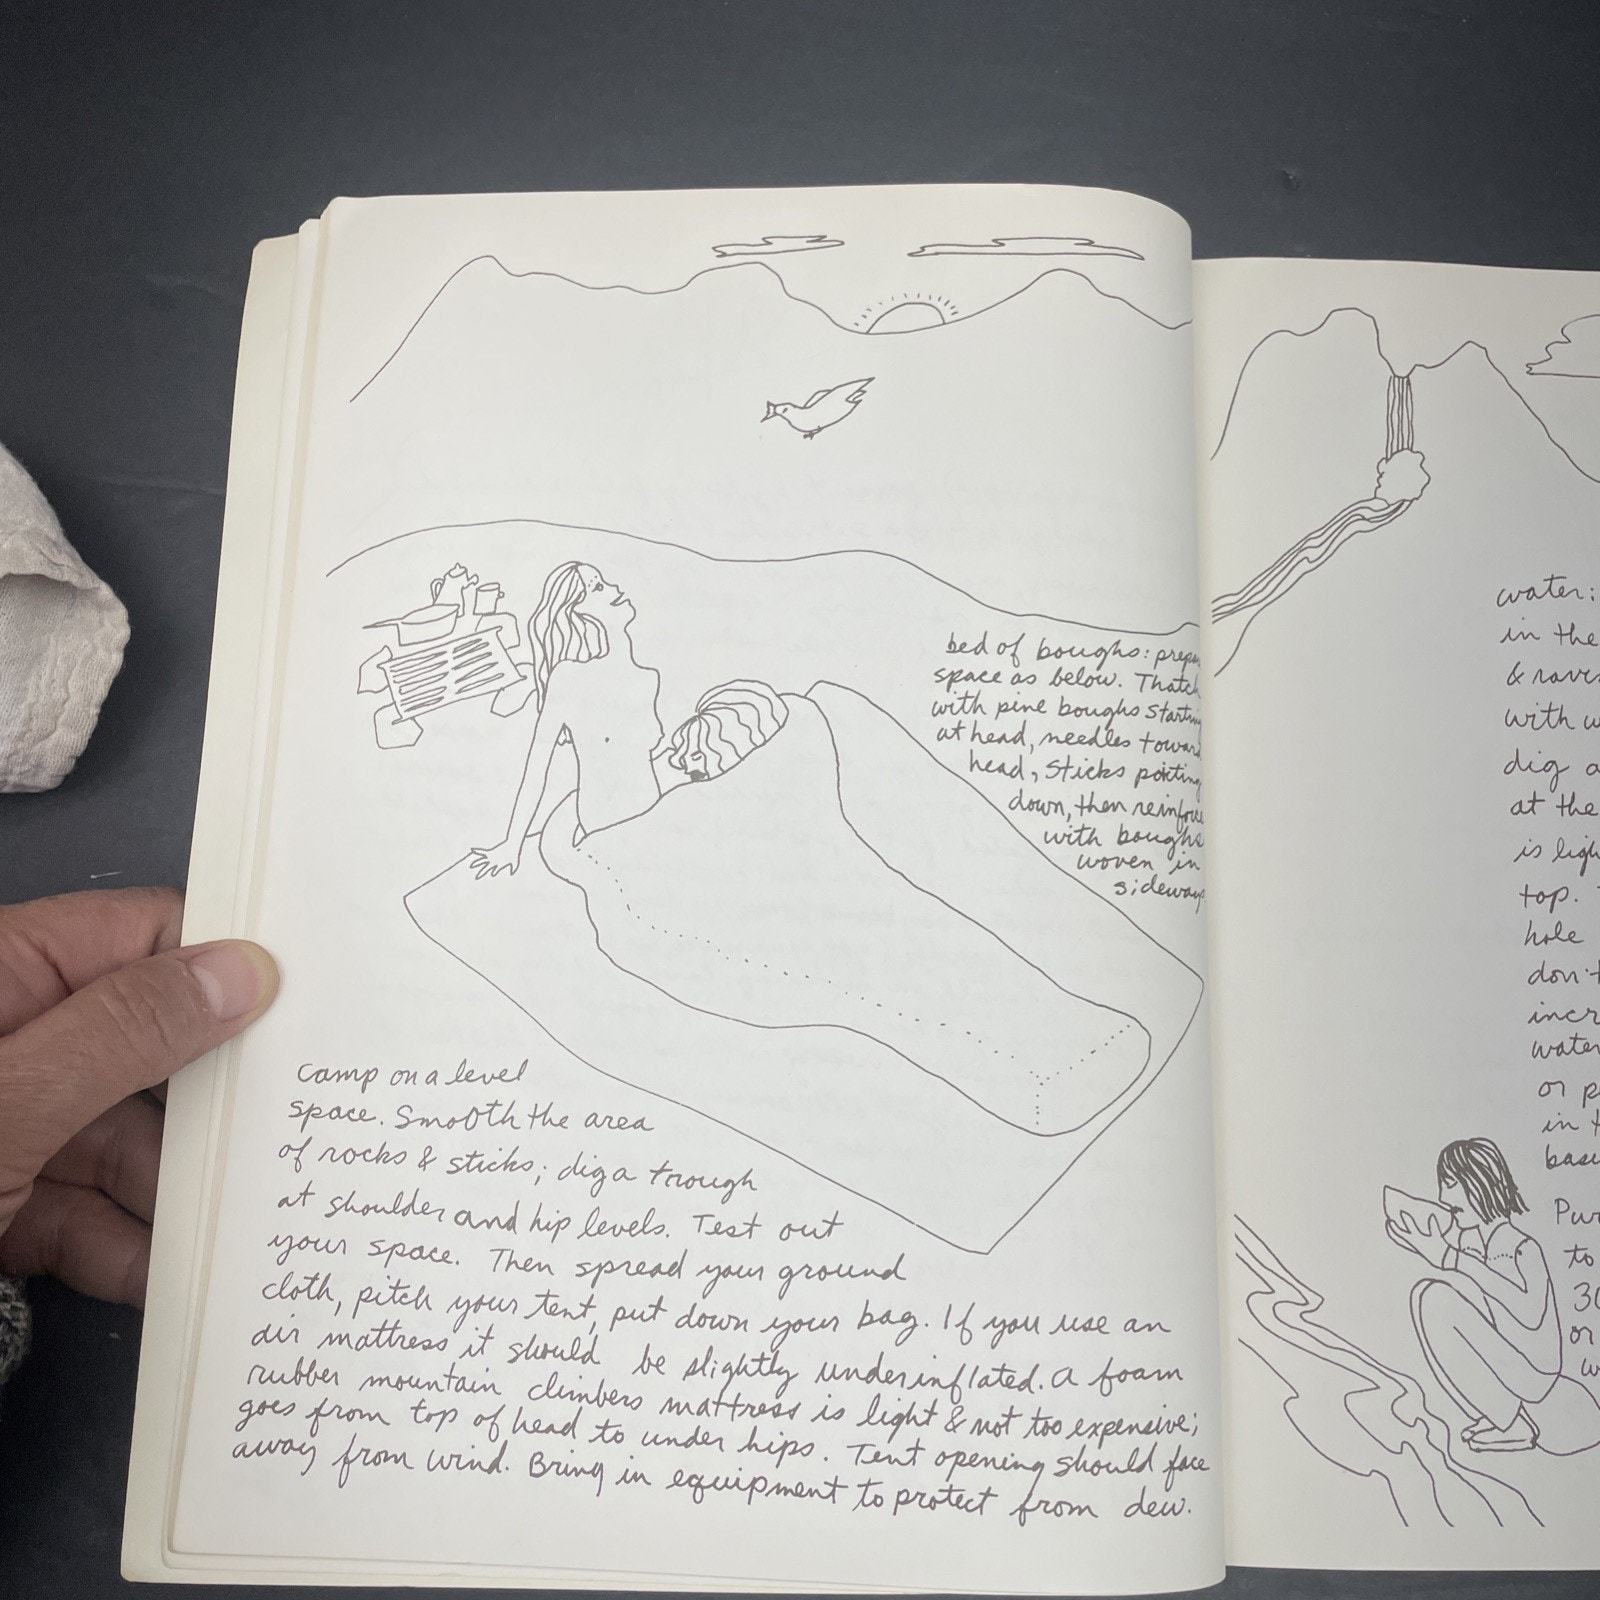 bed of boughs: prepare
space as below. Thatch
with pine boughs starting
at head, needles toward
head, sticks pointing
down, then reinforce
with boughs
woven in
sideways
Camp on a level
space. Smooth the area
of rocks & sticks; dig a trough
at shoulder and hip levels. Test out
your space. Then spread your ground
cloth, pitch your tent, put down your bag. If you use an
air mattress it should be slightly underinflated. a foam
rubber mountain climbers mattress is light & not too expensive;
goes from top of head to under hips. Tent opening should face
away from wind. Bring in equipment to protect from dew.
water:
in the
&
with
dig a
at the
is
top.
hole
don't
water
or
in
to
or